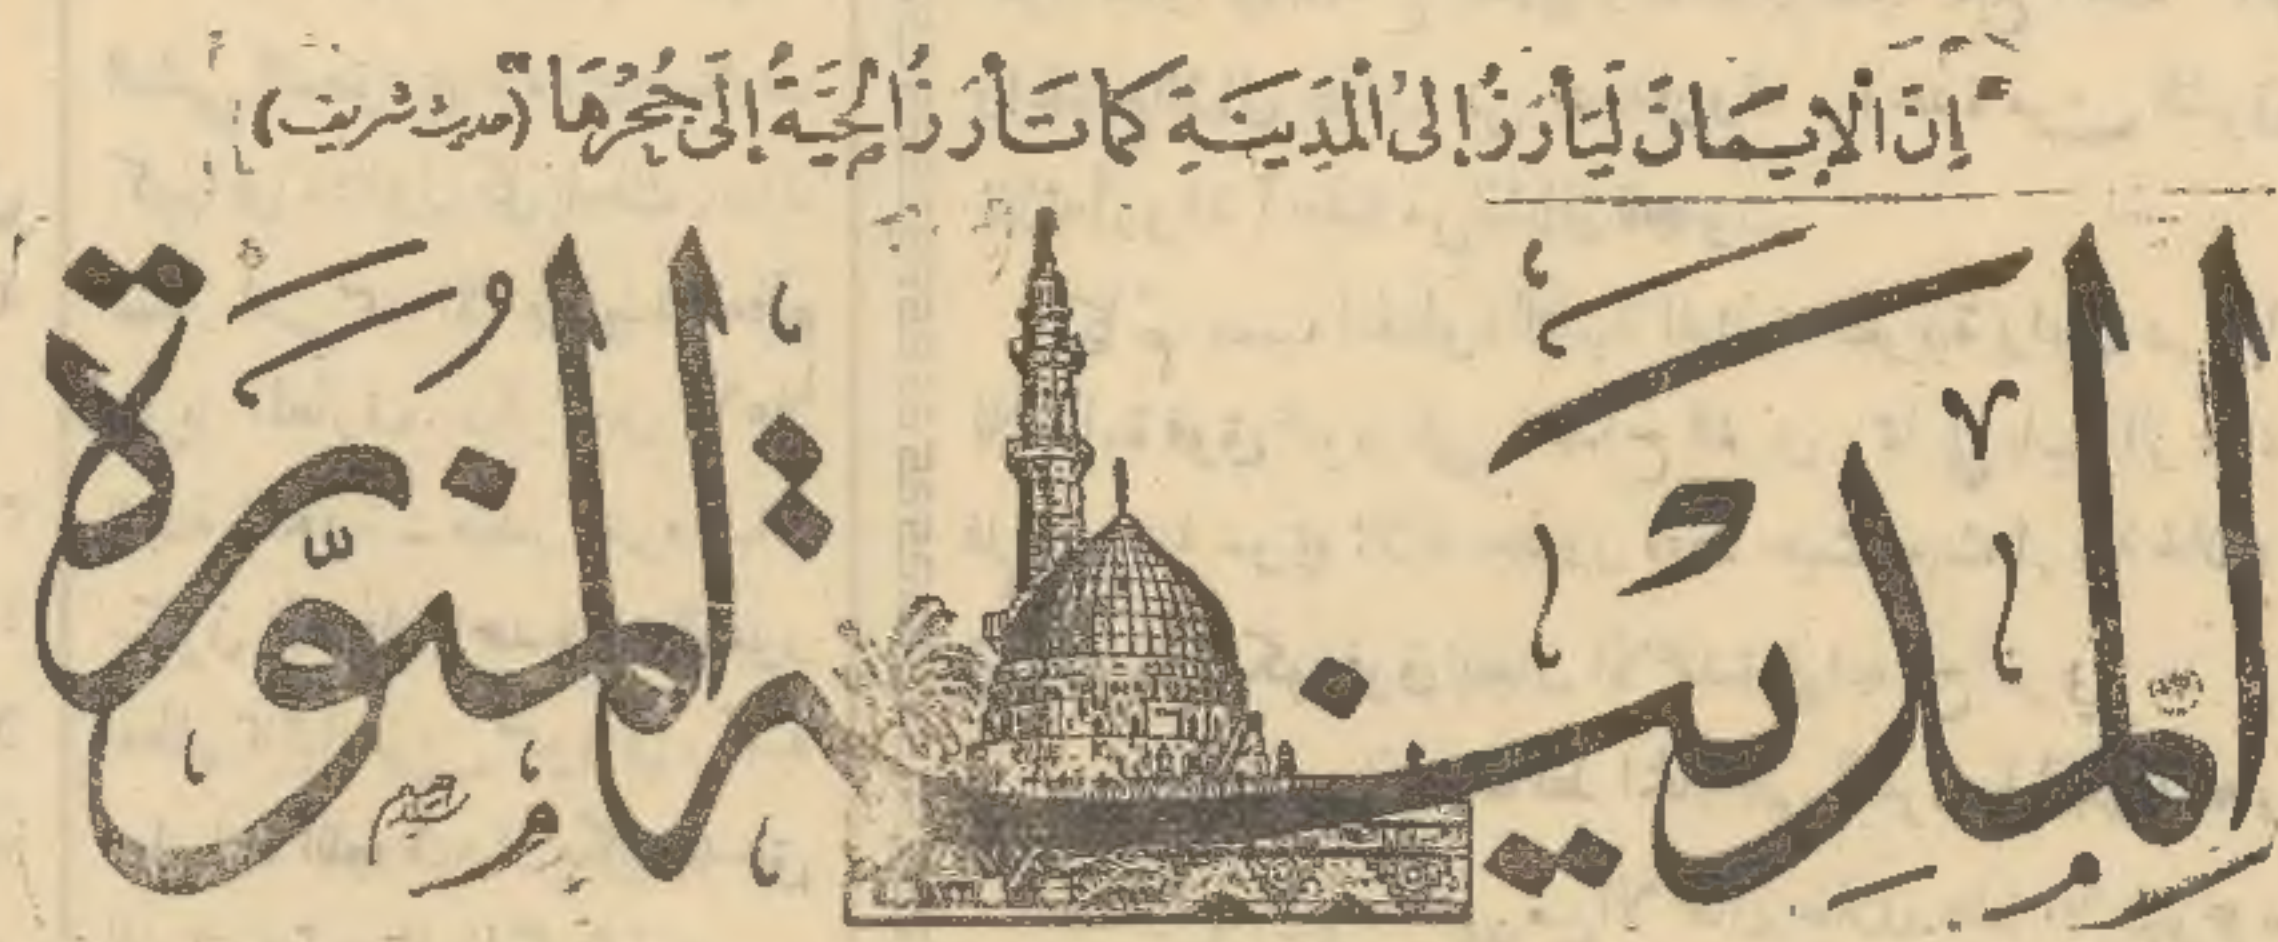 "إِنَّ الْإِيمَانَ لَيَأْرَزُ إِلَى الْمَدِينَةِ كَمَا تَأْرَزُ الْحَيَّةُ إِلَى جُحْرِهَا" (حديث شريف)
المدينة المنوّرة